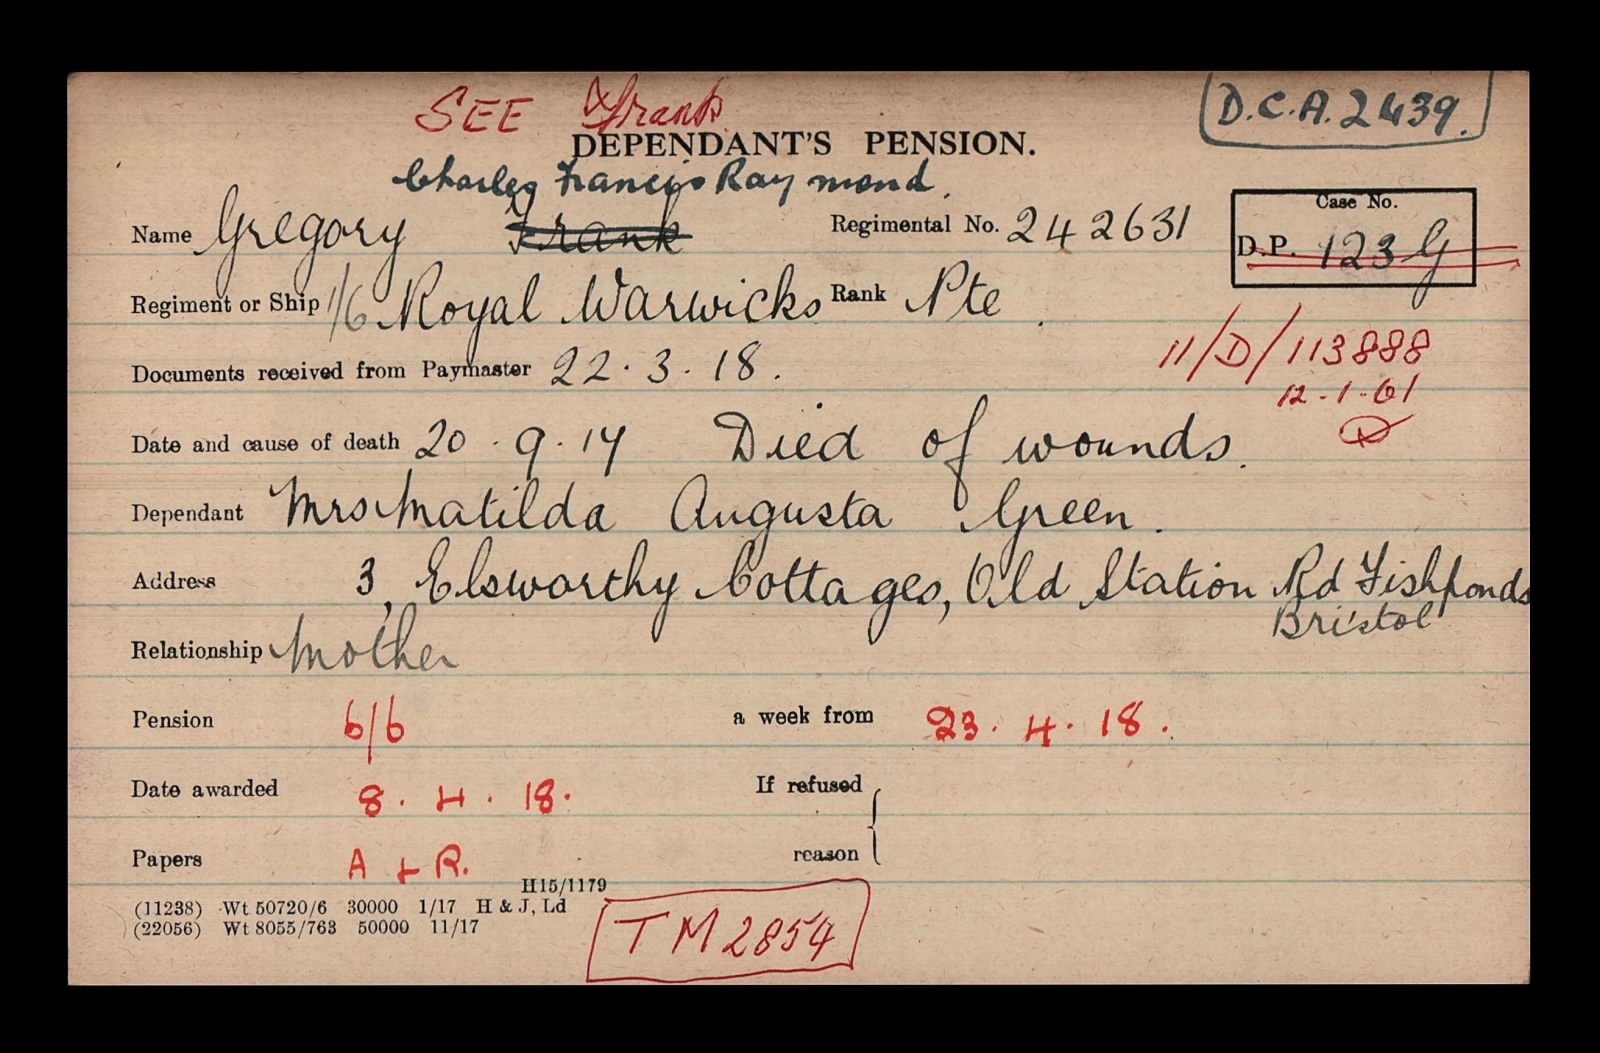 SEE Frank
D.C.A. 2439.
DEPENDANT'S PENSION.
Charles Francis Raymond.
Name Gregory Frank Regimental No. 242631
Case No.
D.P. 123 G
Regiment or Ship 1/6 Royal Warwicks Rank Pte
11/D/113888
Documents received from Paymaster 22.3.18.
12.1.61
Date and cause of death 20.9.17 Died of wounds.
Dependant Mrs Matilda Augusta Green.
Address 3, Elsworthy Cottages, Old Station Rd Fishponds
Bristol
Relationship Mother
Pension 6/6 a week from 23.4.18.
Date awarded 8.4.18. If refused
Papers A & R. reason
H15/1179
(11238) Wt 50720/6 30000 1/17 H & J, Ld
(22056) Wt 8055/763 50000 11/17
TM 2854